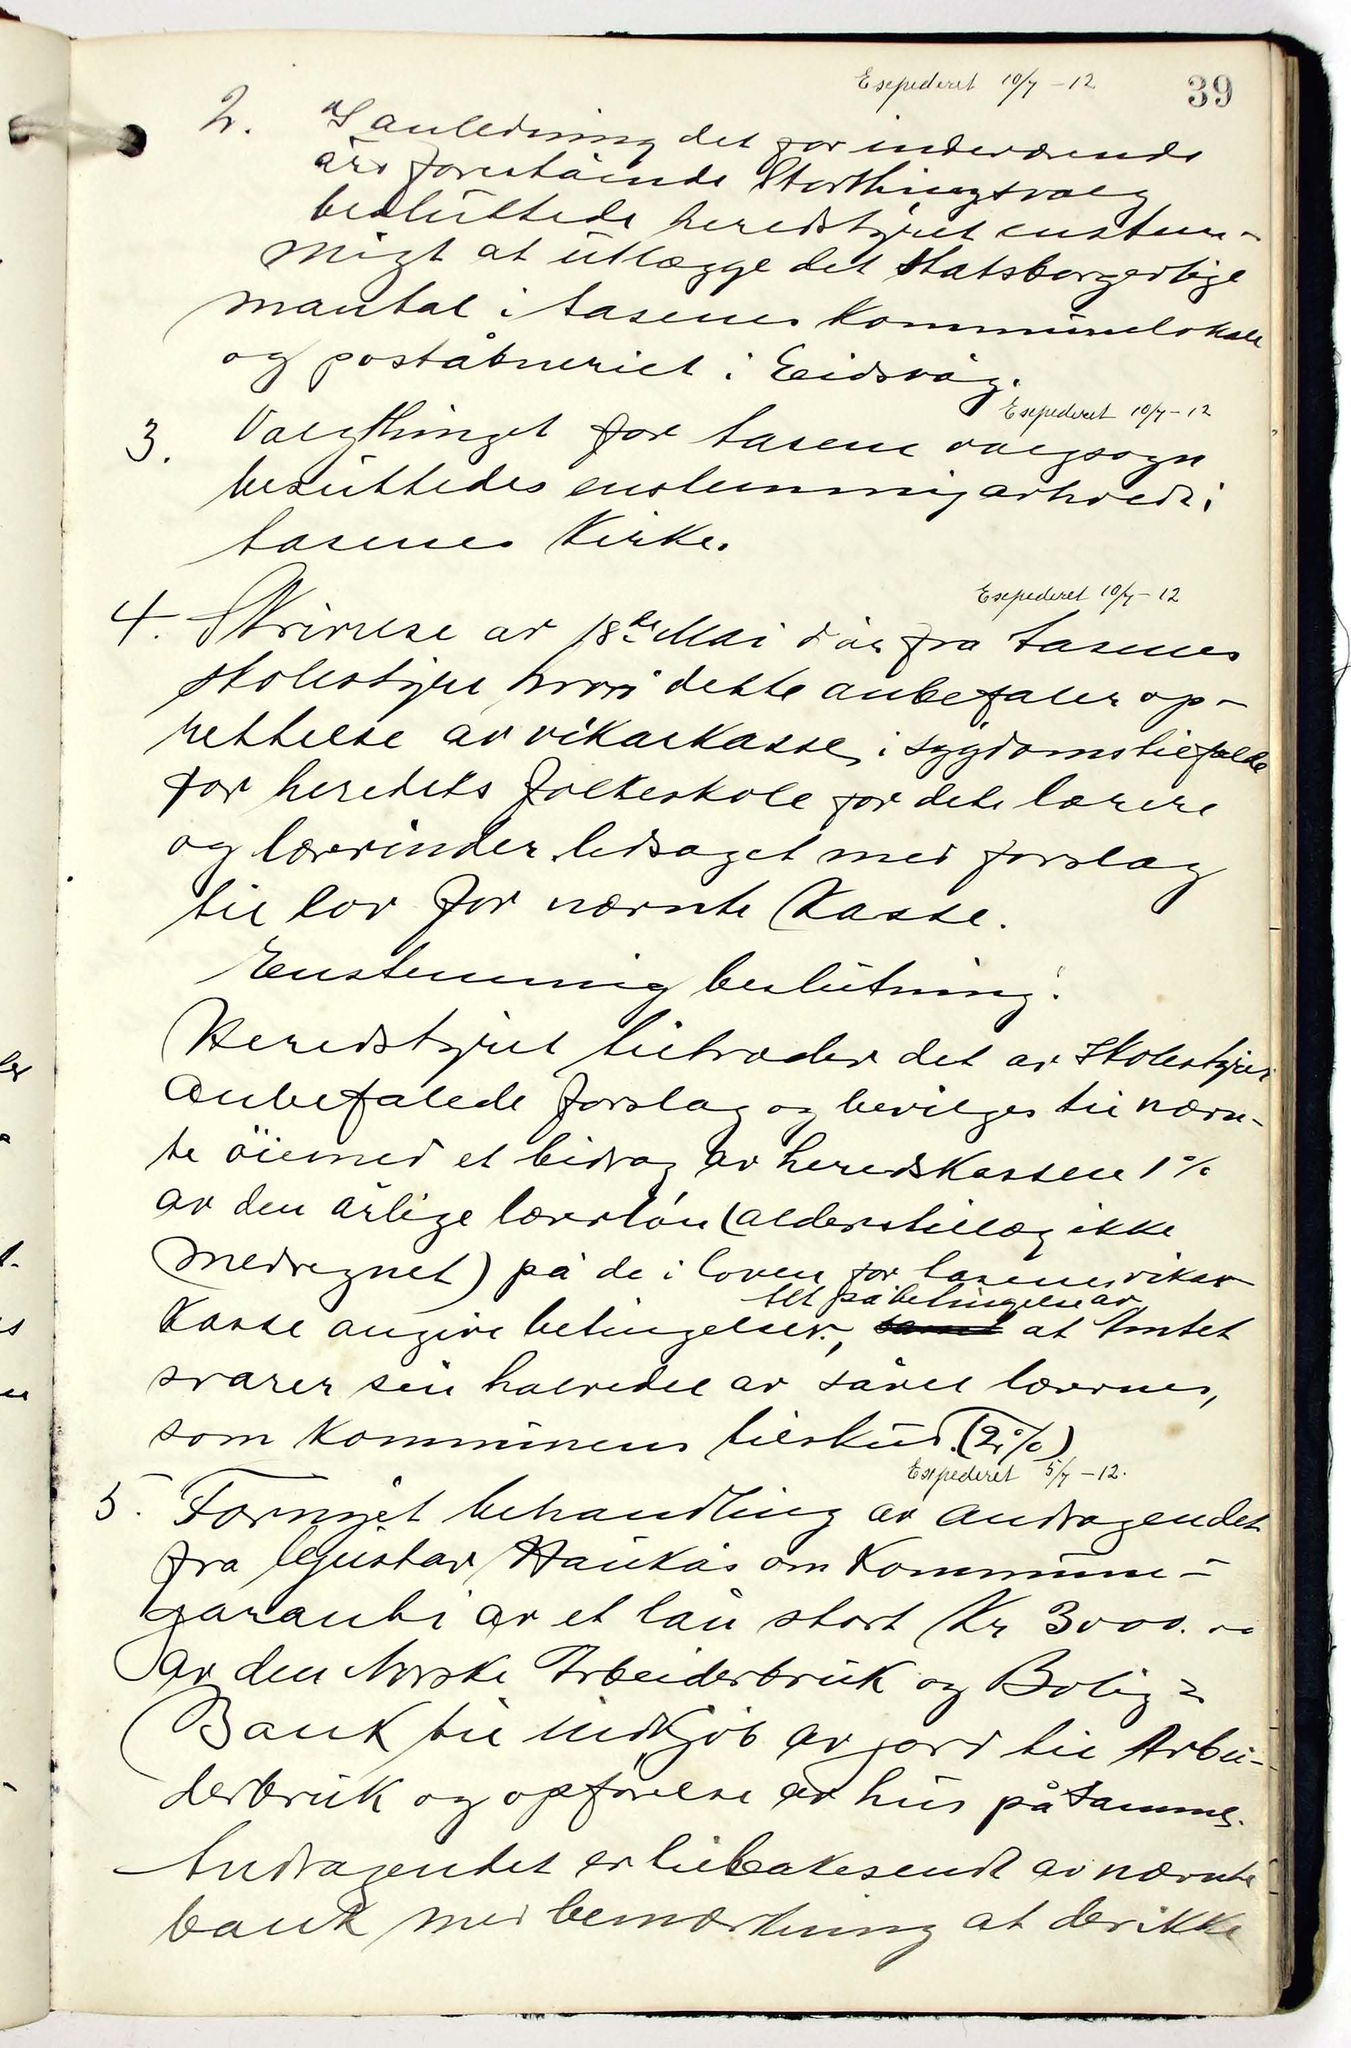 Exspederet 10/7-12
39
2. I anledning det for indeværende
års forestående Storthingsvalg
besluttede heredstyret enstem-
migt at utlægge det statsborgerlige
mantal i Åsenes Kommunelokale
og poståbneriet i Eidsvåg.
Exspederet 10/7-12
3. Valgthinget for Åsene valgsogn
besluttedes enstemmig avholdt i
Åsenes Kirke.
Exspederet 10/7-12
4. Skrivelse av 18de Mai d år fra Åsenes
skolestyre hvori dette anbefaler op-
rettelse av vikarkasse, i sygdomstilfælde
for heredets folkeskole for dets lærere
og lærerinder ledsaget med forslag
til lov for nævnte Kasse.
Enstemmig beslutning:
Heredstyret tiltræder det av Skolestyret
anbefalede forslag og bevilges til nævn-
te øiemed et bidrag av heredskassen 1%
av den årlige lærerløn (alderstillæg ikke
medregnet) på de i loven for Åsenes vikar
alt på betingelse av
Kasse angivne betingelser, samt at Amtet
svarer sin halvedel av såvel lærernes,
som Kommunens tilskud. (2%)
Exspederet 5/7-12.
5. Fornyet behandling av Andragendet
fra Gustav Haukås om Kommune-
garanti av et lån stort Kr 3000.00
av den Norske Arbeiderbruk og Bolig=
Bank til indkjøb av jord til Arbei-
derbruk og opførelse av hus på samme.
Andragendet er tilbakesendt av nævnte
bank med bemærkning at der ikke